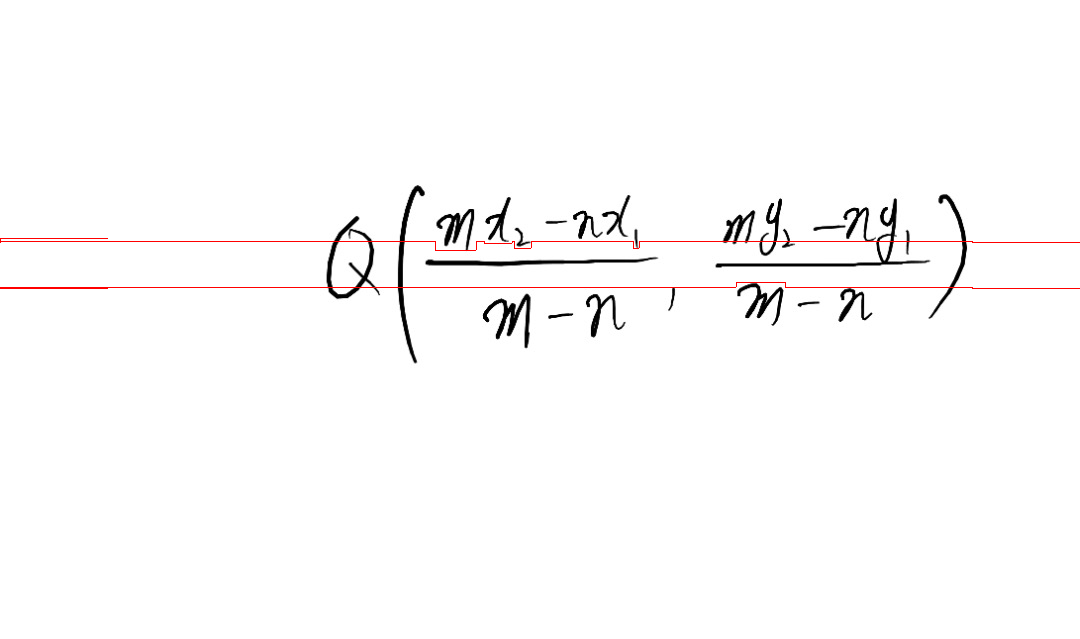 Q(\frac{mx_2-nx_1}{m-n}, \frac{my_2-ny_1}{m-n})